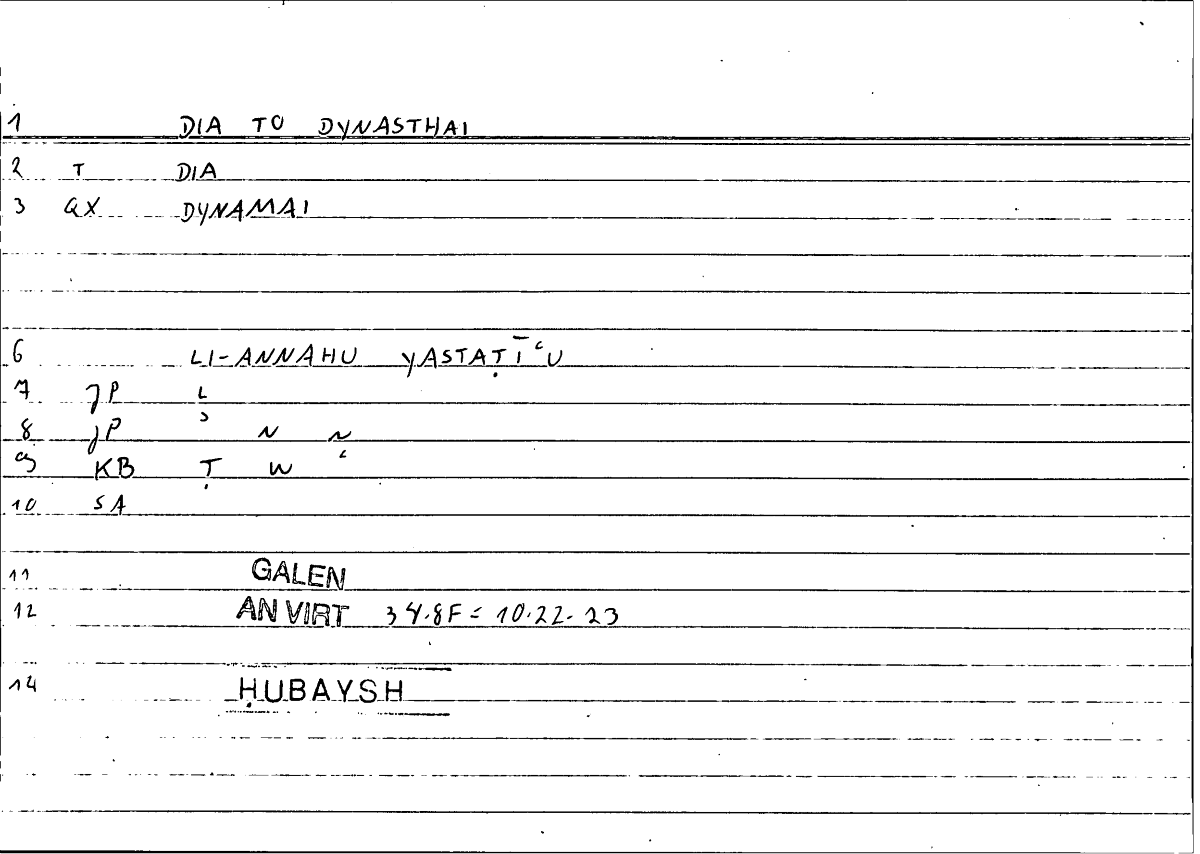 1 DIA TO DYNASTHAI
2 T DIA
3 QX DYNAMAI
6 LI-ANNAHU YASTAṬĪʿU
7 JP L
8 JP ʾ N N
9 KB Ṭ W ʿ
10 SA
11 GALEN
12 AN VIRT 34.8F = 10.22-23
14 ḤUBAYSH